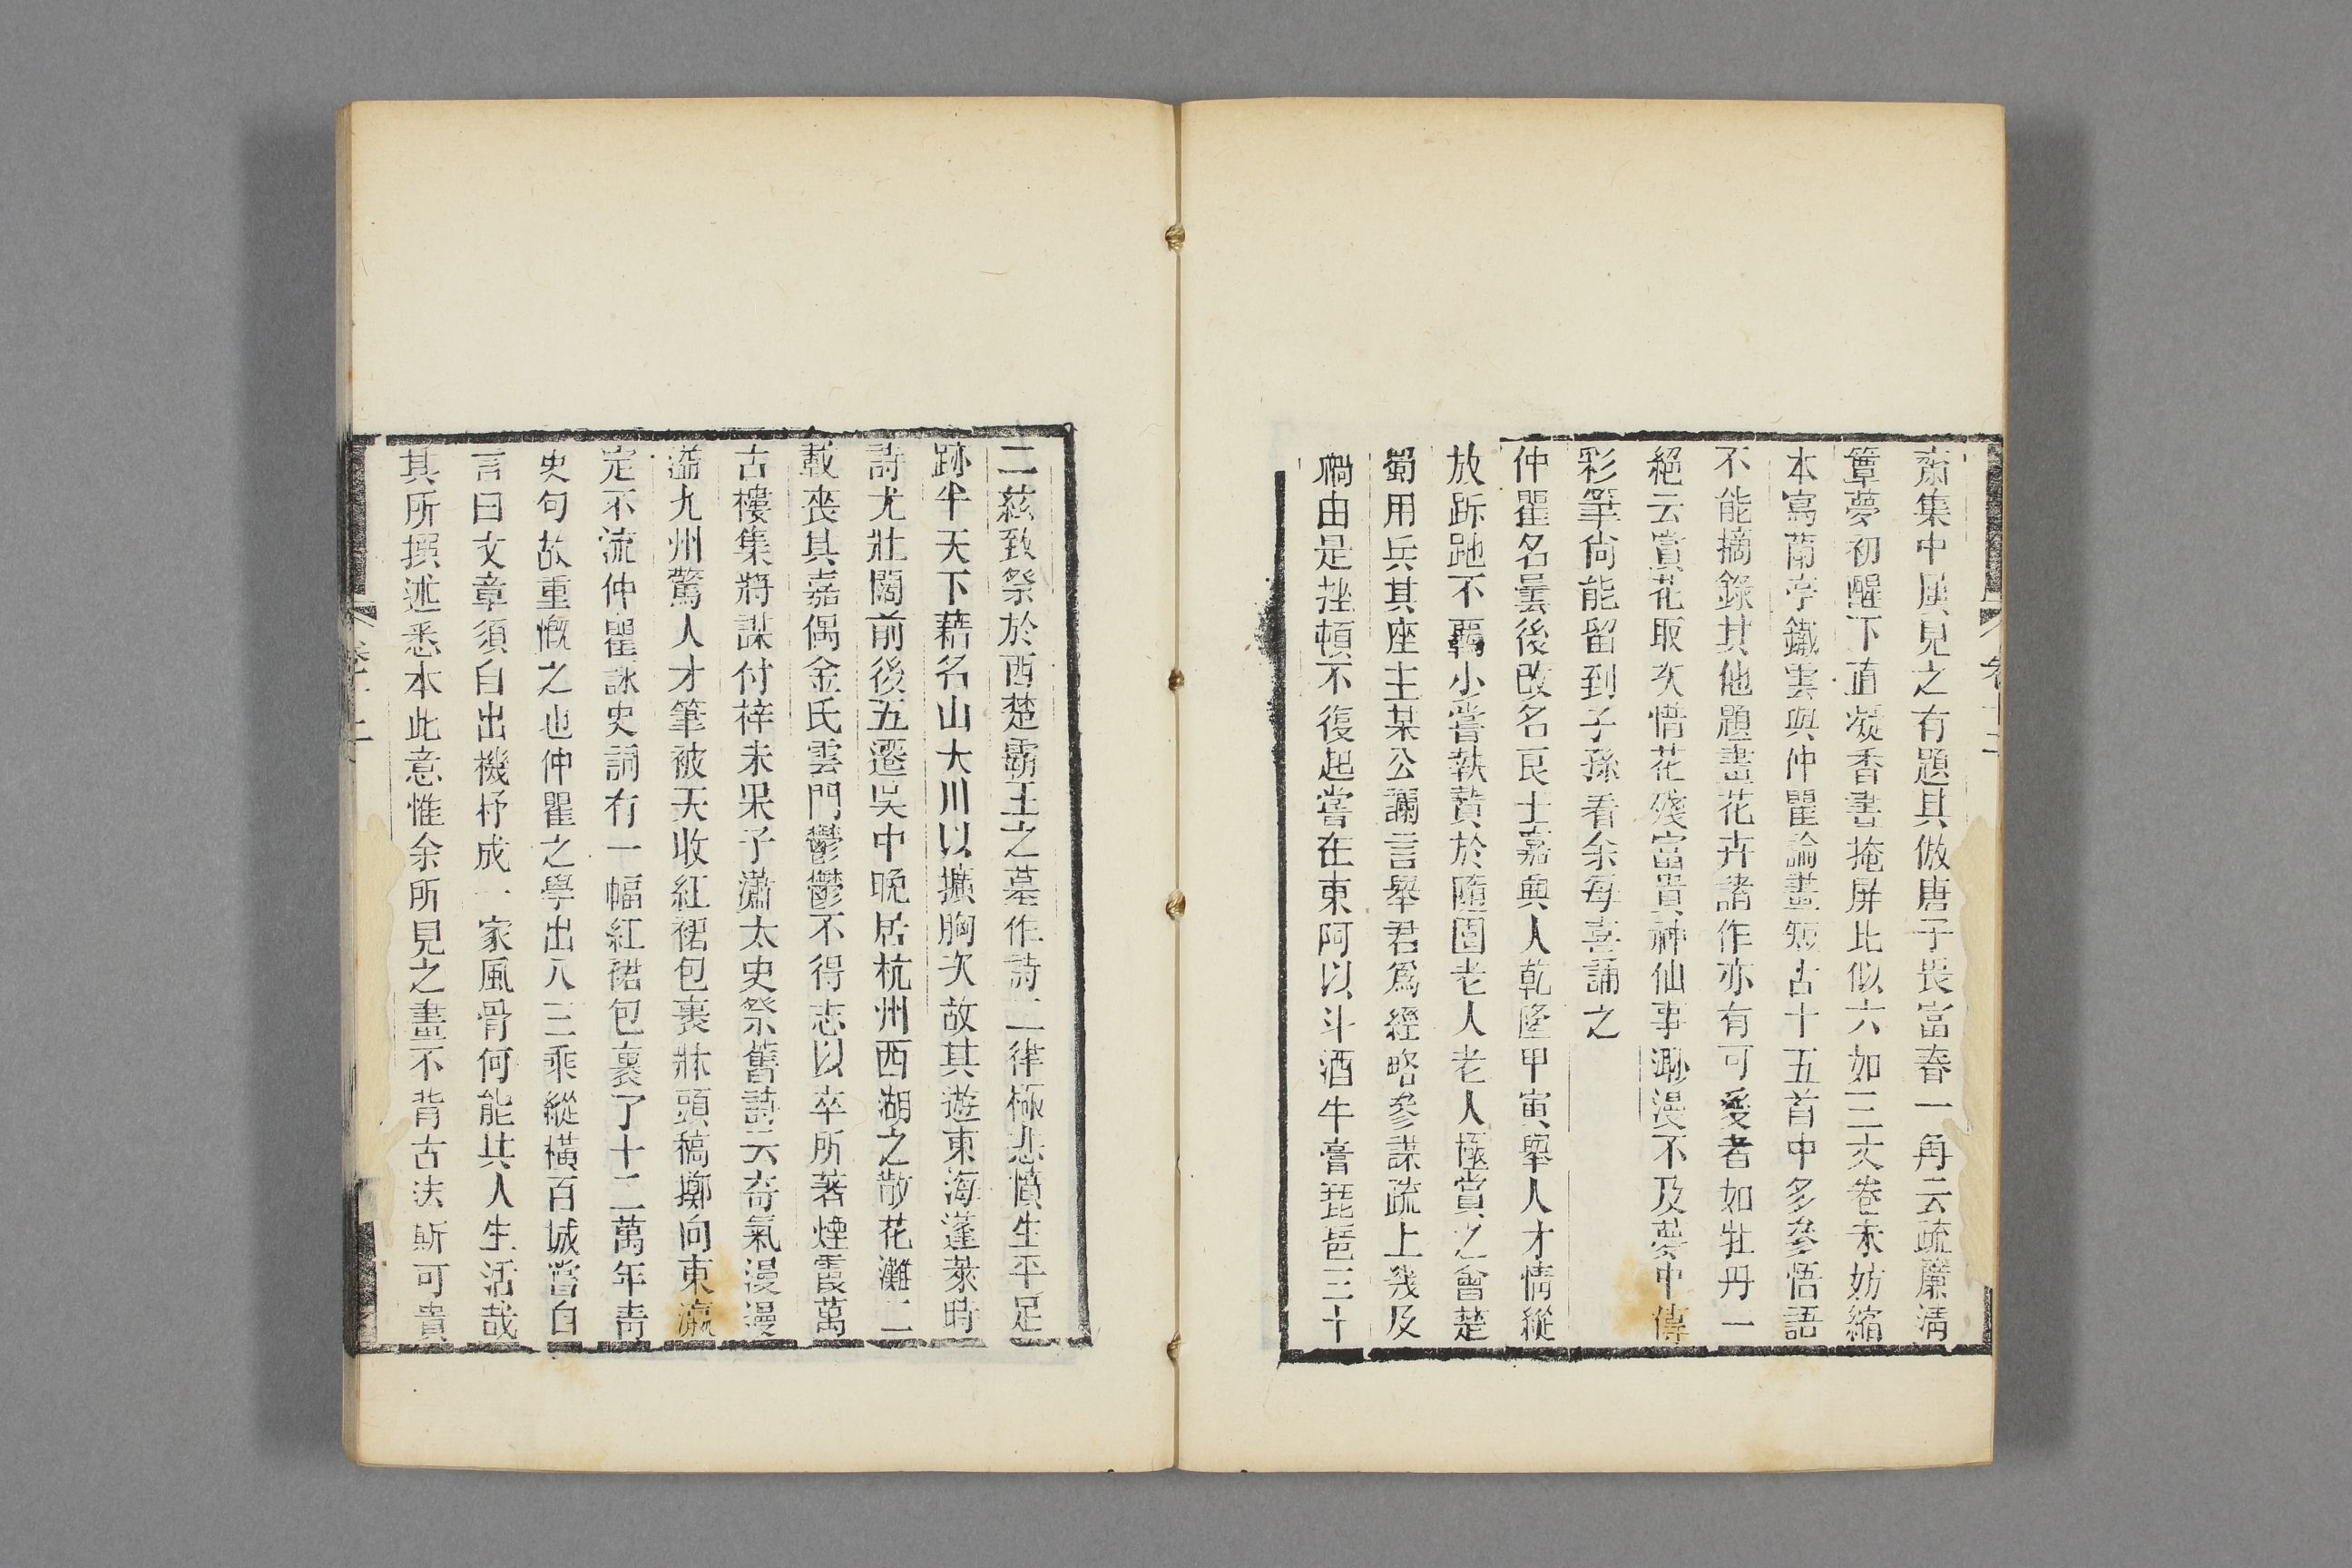 齋集中屢見之有題其倣唐子畏富春一角云疏簾淸
簟夢初醒下直凝香晝掩屏比似六如三丈卷未妨縮
本寫蘭亭鐵雲與仲瞿論畫短古十五首中多參悟語
不能摘錄其他題畫花卉諸作亦有可愛者如牡丹一
絕云賞花取次惜花殘富貴神仙事渺漫不及夢中傳
彩筆尙能留到子孫看余每喜誦之
仲瞿名曇後改名良士嘉興人乾隆甲寅舉人才情縱
放跅跎不羈小嘗執贄於隨園老人老人極賞之會楚
蜀用兵其座主某公讕言舉君爲經略參謀疏上幾及
禍由是挫頓不復起嘗在東阿以斗酒牛膏琵琶三十
二絃致祭於西楚霸王之墓作詩二律極悲憤生平足
跡半天下藉名山大川以擴胸次故其遊東海蓬萊時
詩尤壯闊前後五遷吳中晚居杭州西湖之散花灘二
載喪其嘉偶金氏雲門鬱鬱不得志以卒所著煙霞萬
古樓集將謀付梓未果子瀟太史祭舊詩云奇氣漫漫
溢九州驚人才筆被天收紅裙包裹牀頭稿擲向東瀛
定不流仲瞿詠史詞有一幅紅裙包裹了十二萬年靑
史句故重慨之也仲瞿之學出入三乘縱橫百城嘗自
言曰文章須自出機杼成一家風骨何能共人生活哉
其所撰述悉本此意惟余所見之畫不背古法斯可貴